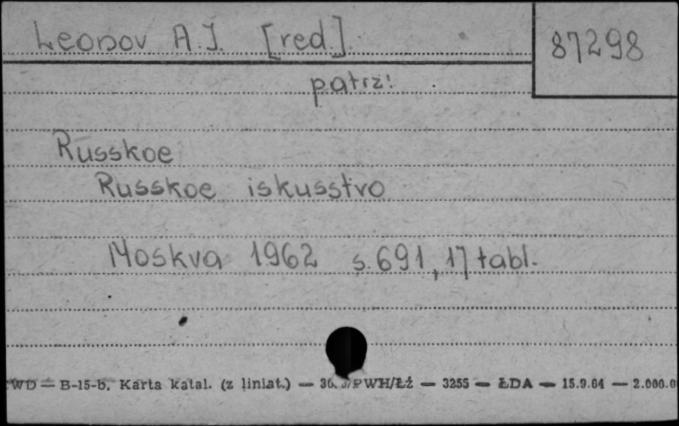 Leonov A.I. [red.]
87298
patrz:
Russkoe
Russkoe iskusstvo
Moskva 1962 s. 691, 17 tabl.
WD — B-15-b, Karta katal. (z liniat.) — /PWH/ŁŹ — 3255 — ŁDA — 15.9.64 — 2.000.0